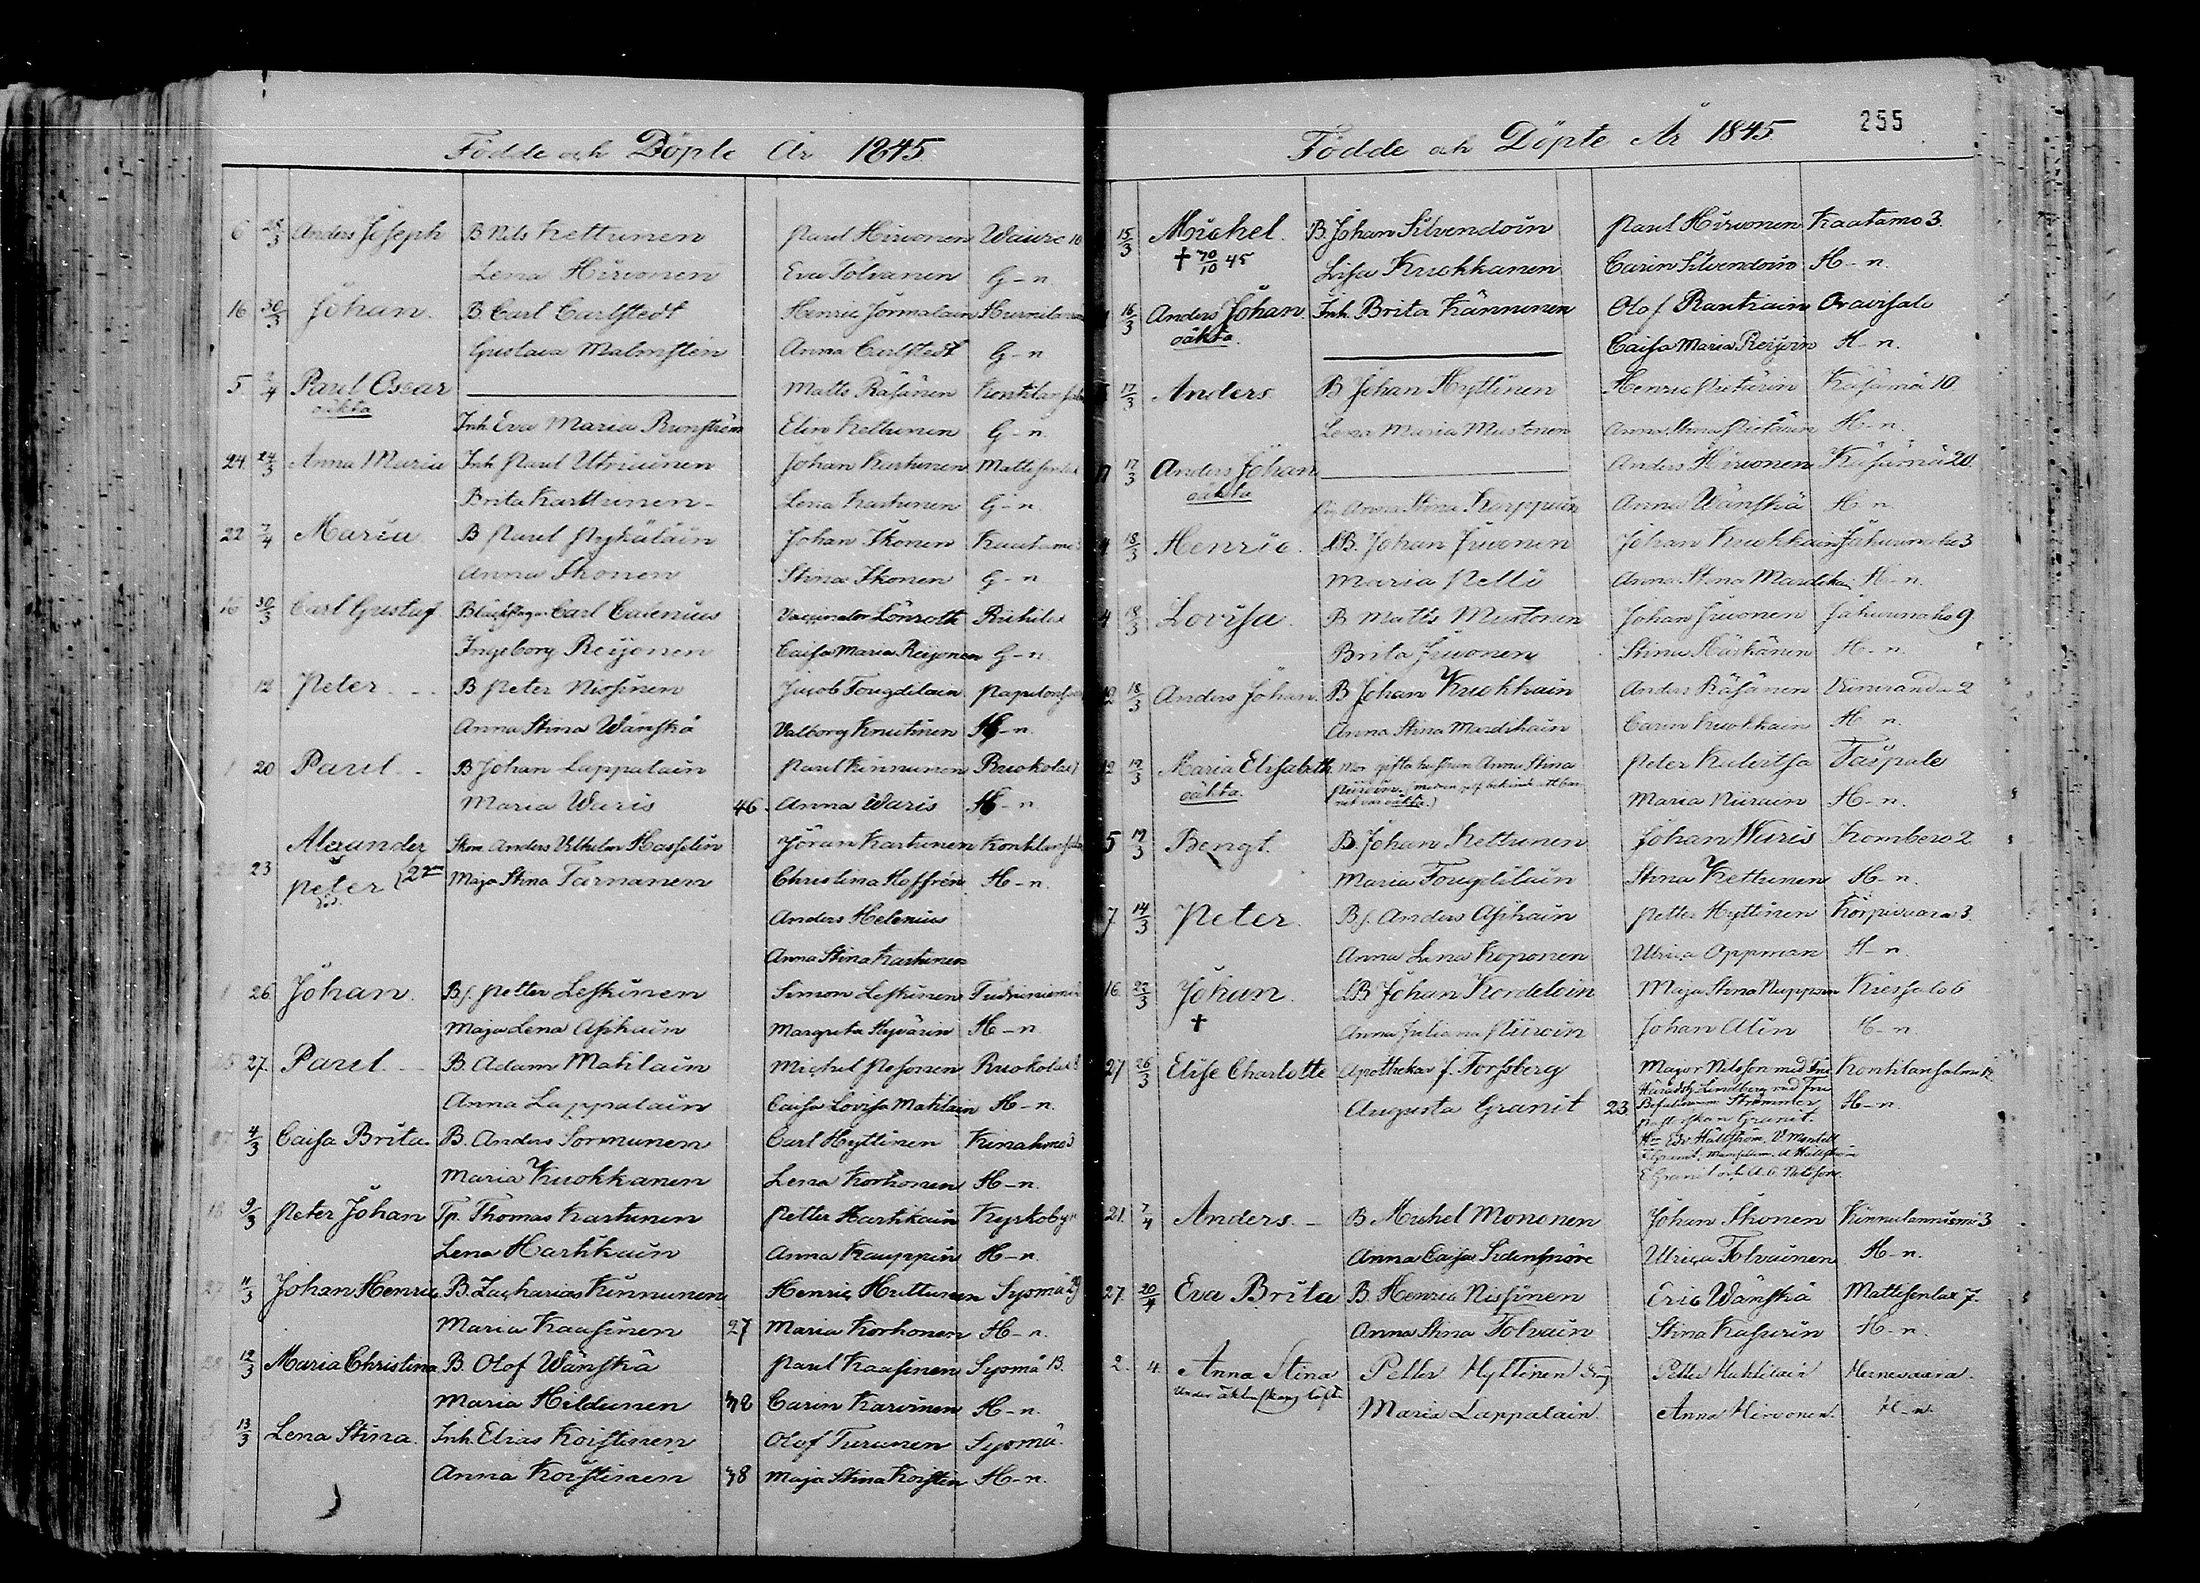 Födde och Döpte År 1845
6 25/3 Anders Joseph B Nils Kettunen Paul Hirvonen
Lena Hirvonen Eva Tolvanen G-n
16 30/3 Johan. B Carl Carlstedt Henric Jormalain
Gustava Malmstein Anna Carlstedt G-n
5 2/4 Paul Oscar Matts Räsänen
oäkta Inh. Eva Maria Elin Kettunen G-n.
24. 24/3 Anna Maria Inh Paul Utriainen Johan Karttunen
Brita Karttunen- Lena Kartunen G-n.
22 7/4 Maria B Paul Pyykäläin Johan Ikonen Kaatamo
Anna Ikonen Stina Ikonen G-n
16 30/3 Carl Gustaf Carl Calenius Vaccinator Lönroth
Ingeborg Reijonen Caisa Maria Reijonen G-n
12 Peter B Peter Nissinen Jacob Tougdilain
Anna Stina Wänskä Valborg Knutinen H-n.
20 Paul B Johan Lappalain Paul Kinnunen Ruokola
Maria Waris 46. Anna Waris H-n
Alexander Anders Vilhelm Hasselin Jöran Kartunen
23 Peter Maja Stina Tarnanen Christina Hoffrén H-n.
Anders Helenius
Anna Stina Kartunen
26 Johan. Bs. Petter Leskinen Simon Leskinen
Maja Lena Asikain Margreta Hyvärin H-n.
27. Paul B. Adam Matilain Michel Pesonen Ruokola
Anna Lappalain Caisa Lovisa Matilain H-n.
4/3 Caisa Brita B. Anders Sormunen Carl Hyttinen
Maria Kuokkanen Lena Korhonen H-n.
9/3 Peter Johan Tp. Thomas Kartunen Petter Hartikain Kyrkoby
Lena Hartikain Anna Kauppin H-n
11/3 Johan Henric B. Zacharias Kinnunen Henric Huttunen Syomä 29
Maria Kaasinen 27 Maria Korhonen H-n.
12/3 Maria Christina B. Olof Wänskä Paul Kaasinen Syomä 13.
Maria Hildunen 32 Carin Karvinen H-n.
13/3 Lena Stina. Inh. Elias Koistinen Olof Turunen Syomä.
Anna Koistinen 38 Maja Stina Koistin H-n.
Födde och Döpte År 1845.
255
15/3 Michel. B. Johan Silvendoin Paul Hirvonen Kaatamo 3.
† 45 Lisa Kuokkanen Carin Silvendoin H-n.
16/3 Anders Johan Inh. Brita Kännunen Olof Rautiain Oravisalo
oäkta. Caisa Maria Reijoin H-n.
17/3 Anders B Johan Hyttinen Henric Pietärin Käsämä 10
Lena Maria Mustonen Anna Stina Pietärin H-n.
17/3 Anders Johan Anders Hirvonen Käsämä 20.
oäkta Anna Stina Karppiin Anna Wänskä H-n.
18/3 Henric. LB. Johan Juvonen Johan Kuokkain 3
Maria Pelli Anna Stina H-n.
18/3 Lovisa. B Matts Mustonen Johan Juvonen 9
Brita Juvonen Stina Kärkänen H-n.
18/3 Anders Johan. B Johan Kuokkain Anders Räsänen 2
Anna Stina Carin Kuokkain H n.
19/3 Maria Elisabeth gifta hustrun Anna Stina Peter Kuleritsa Taipale
oäkta. Maria Niirain H-n.
5 19/3 Bengt. B. Johan Kettunen Johan Waris Kombero 2
Maria Tougdilain Stina Kettunen H-n.
7. 14/3 Peter. Bs. Anders Asikain Petter Hyttinen Korpivaara 3.
Anna Lena Koponen Ulrica Oppman H-n.
16. 22/3 Johan. LB Johan Kordelain Maja Stina 6
† Anna Juliana Johan Alin H-n
27 26/3 Elise Charlotte Apothekar J. Forssberg Major Nilsson med Fru Kontilansalmi 12
Augusta Granit 23 Häradsh. Lindberg med Fru H-n.
Granit.
21. 7/4 Anders. B Michel Mononen Johan Ikonen Kinnulanniemi 3
Anna Caisa Sidensnöre Ulrica Tolvainen H-n.
27. 20/4 Eva Brita B. Henric Nissinen Eric Wänskä Mattisenlax 7.
Anna Stina Tolvain Stina Kasurin H-n.
2. 4. Anna Stina Petter Hyttinen Petter Matilain Hernevaara.
Under äktenskaps löfte Maria Lappalain. Anna Hirvonen. H-n.